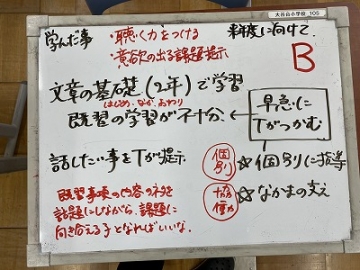 学んだ事
・「聴く力」をつける
・意欲の出る課題提示
来年度に向けて、
B
文章の基礎(2年)で学習
はじめ、なか、おわり
既習の学習が不十分
早急に
Tがつかむ
話したい事をTが提示
個別
☆個別に指導
協働
☆なかまの支え
既習事項の内容のネタを
話題にしながら、課題に
向き合える子となればいいな。